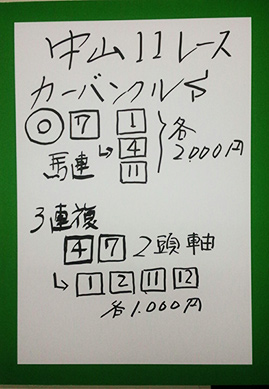 中山11レース
カーバンクルS
◎ 7 1
馬連 → 4 各2,000円
11
3連複
4 7 2頭軸
→ 1 2 11 12
各1,000円